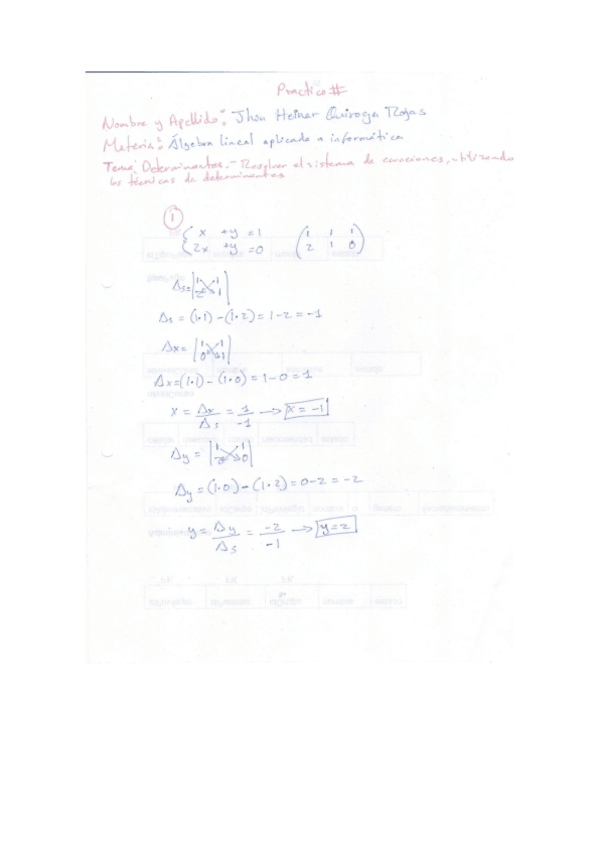 Practico #
Nombre y Apellido: Jhon Heiner Quiroga Rojas
Materia: Álgebra lineal aplicado a informática
Tema: Determinantes.- Resolver el sistema de ecuaciones, utilizando
las técnicas de determinantes
1
{ x +y =1 ( 1 1 1
2x +y =0 2 1 0 )
Δs = | 1 1
2 1 |
Δs = (1·1) - (1·2) = 1-2 = -1
Δx = | 1 1
0 1 |
Δx = (1·1) - (1·0) = 1-0 = 1
x = Δx/Δs = 1/-1 → x = -1
Δy = | 1 1
2 0 |
Δy = (1·0) - (1·2) = 0-2 = -2
y = Δy/Δs = -2/-1 → y=2